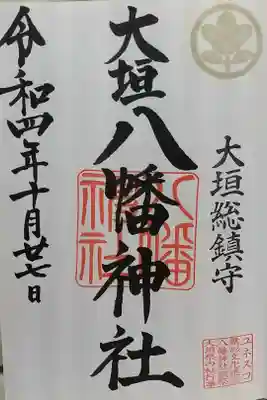 大垣総鎮守
大垣八幡神社
八幡
神社
令和四年十月廿七日
ユネスコ